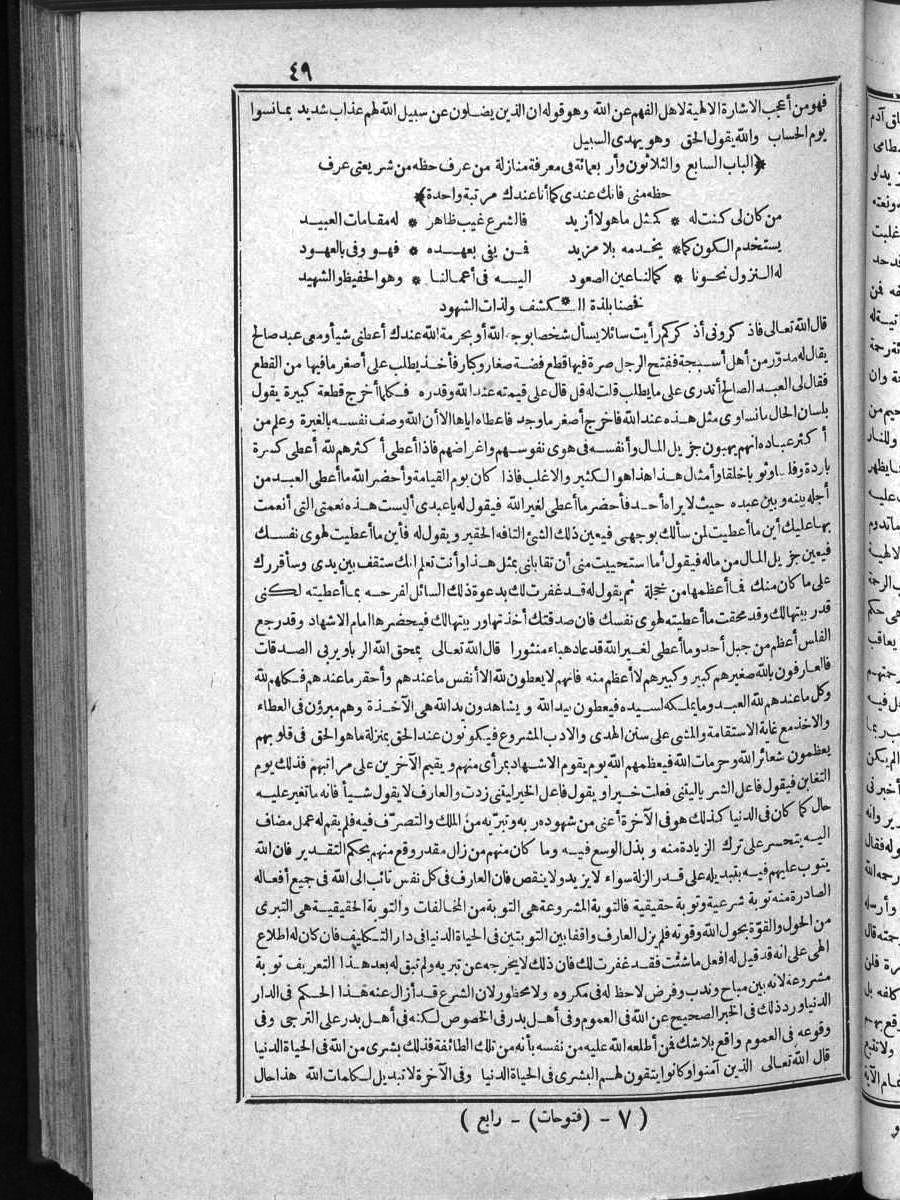 ٤٩
فهو من أعجب الاشارة الالهية لاهل الفهم عن الله وهو قوله ان الذين يضلون عن سبيل الله لهم عذاب شديد بمانسوا
يوم الحساب والله يقول الحق وهو يهدى السبيل
﴿الباب السابع والثلاثون وأربعمائة فى معرفة منازلة من عرف حظه من شريعتى عرف
حظه منى فانك عندى كما أنا عندك مرتبة واحدة﴾
من كان لى كنت له * كمثل ما هو لا أزيد فالشرع غيب ظاهر * له مقامات العبيد
يستخدم الكون كما * يخدمه بلا مزيد فمن يفى بعهده * فهو وفى بالعهود
له النزول نحونا * كمالنا عين الصعود اليه فى أعمالنا * وهو الحفيظ والشهيد
خصنا بلذة الـ * كشف ولذات الشهود
قال الله تعالى فاذكرونى أذكركم رأيت سائلا يسأل شخصا بوجه الله أو بحرمة الله عندك أعطنى شيأ ومعى عبد صالح
يقال له مدور من أهل أسبيجة ففتح الرجل صرة فيها قطع فضة صغار وكبار فأخذ يطلب على أصغر ما فيها من القطع
فقال لى العبد الصالح أتدرى على ما يطلب قلت له قل قال على قيمته عند الله وقدره فكلما أخرج قطعة كبيرة يقول
بلسان الحال ما نساوى مثل هذه عند الله فأخرج أصغر ما وجد فاعطاه اياها الا أن الله وصف نفسه بالغيرة وعلم من
أكثر عباده انهم يهبون جزيل المال وأنفسه فى هوى نفوسهم واغراضهم فاذا أعطى أكثرهم لله أعطى كسرة
باردة وفلسا وثوبا خلقا وأمثال هذا هذا هو الكثير والاغلب فاذا كان يوم القيامة وأحضر الله ما أعطى العبد من
أجله بينه وبين عبده حيث لا يراه أحد فأحضر ما أعطى لغير الله فيقول له يا عبدى أليست هذه نعمتى التى أنعمت
بها عليك أين ما أعطيت لمن سألك بوجهى فيعين ذلك الشئ التافه الحقير ويقول له فأين ما أعطيت لهوى نفسك
فيعين جزيل المال من ماله فيقول أما استحييت منى أن تقابلنى بمثل هذا وأنت تعلم انك ستقف بين يدى وسأقررك
على ما كان منك فما أعظمها من خجلة ثم يقول له قد غفرت لك بدعوة ذلك السائل لفرحه بما أعطيته لكنى
قد ربيتها لك وقد محقت ما أعطيته لهوى نفسك فان صدقتك أخذتها وربيتها لك فيحضرها امام الاشهاد وقد رجع
الفلس أعظم من جبل أحد وما أعطى لغير الله قد عاد هباء منثورا قال الله تعالى يمحق الله الربا ويربى الصدقات
فالعارفون بالله صغيرهم كبير وكبيرهم لا أعظم منه فانهم لا يعطون لله الا أنفس ما عندهم وأحقر ما عندهم فكلهم لله
وكل ما عندهم لله العبد وما يملكه لسيده فيعطون بيد الله ويشاهدون يد الله هى الآخذة وهم مبرؤن فى العطاء
والاخذ مع غاية الاستقامة والمشى على سنن الهدى والادب المشروع فيكونون عند الحق بمنزلة ما هو الحق فى قلوبهم
يعظمون شعائر الله وحرمات الله فيعظمهم الله يوم يقوم الاشهاد بمرأى منهم ويقيم الآخرين على مراتبهم فذلك يوم
التغابن فيقول فاعل الشر ياليتنى فعلت خيرا ويقول فاعل الخير ليتنى زدت والعارف لا يقول شيأ فانه ما تغير عليه
حال كما كان فى الدنيا كذلك هو فى الآخرة أعنى من شهوده ربه وتبريه من الملك والتصرف فيه فلم يقم له عمل مضاف
اليه يتحسر على ترك الزيادة منه وبذل الوسع فيه وما كان منهم من زال مقدر وقع منهم بحكم التقدير فان الله
يتوب عليهم فيه بتبديله على قدر الزلة سواء لا يزيد ولا ينقص فان العارف فى كل نفس تائب الى الله فى جميع أفعاله
الصادرة منه توبة شرعية وتوبة حقيقية فالتوبة المشروعة هى التوبة من المخالفات والتوبة الحقيقية هى التبرى
من الحول والقوة بحول الله وقوته فلم يزل العارف واقفا بين التوبتين فى الحياة الدنيا فى دار التكليف فان كان له اطلاع
الهى على انه قد قيل له افعل ما شئت فقد غفرت لك فان ذلك لا يخرجه عن تبريه ولم تبق له بعد هذا التعريف توبة
مشروعة لانه بين مباح وندب وفرض لا حظ له فى مكروه ولا محظور لان الشرع قد أزال عنه هذا الحكم فى الدار
الدنيا ورد ذلك فى الخبر الصحيح عن الله فى العموم وفى أهل بدر فى الخصوص لكنه فى أهل بدر على الترجى وفى
وقوعه فى العموم واقع بلا شك فمن أطلعه الله عليه من نفسه بأنه من تلك الطائفة فذلك بشرى من الله فى الحياة الدنيا
قال الله تعالى الذين آمنوا وكانوا يتقون لهم البشرى فى الحياة الدنيا وفى الآخرة لا تبديل لكلمات الله هذا حال
( ٧ - (فتوحات) - رابع )